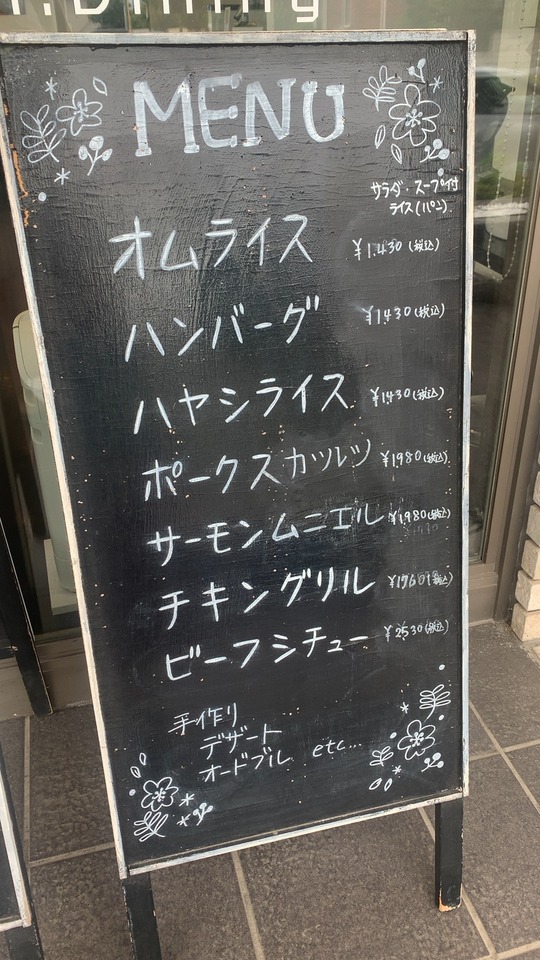 .Dining
MENU
サラダ・スープ付
ライス(パン)
オムライス ¥1,430(税込)
ハンバーグ ¥1430(税込)
ハヤシライス ¥1430(税込)
ポークスカツレツ ¥1,980(税込)
サーモンムニエル ¥1,980(税込)
チキングリル ¥1760(税込)
ビーフシチュー ¥2530(税込)
手作り
デザート
オードブル etc...